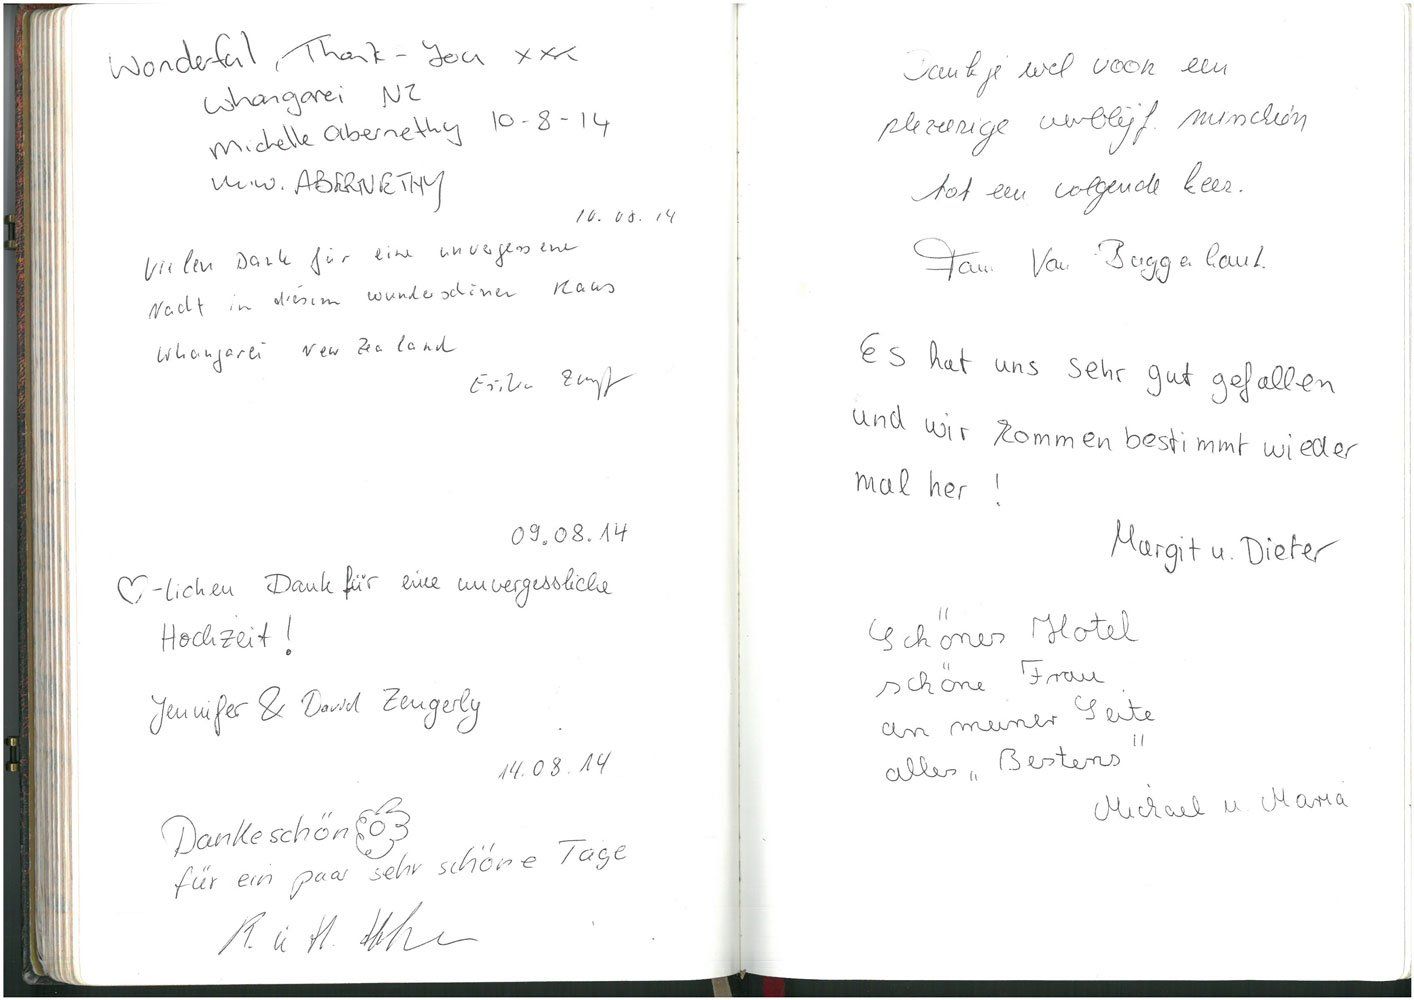 Wonderful, Thank-You xxx
Whangarei NZ
Michelle Abernethy 10-8-14
ABERNETHY
10.08.14
Vielen Dank für eine unvergessene
Nacht in diesem wunderschönen Haus
Whangarei New Zealand
09.08.14
♡-lichen Dank für eine unvergessliche
Hochzeit!
Jennifer & David Zengerly
14.08.14
Dankeschön
für ein paar sehr schöne Tage
Dankje wel voor een
plezierige verblijf. misschien
tot een volgende keer.
Fam Van
Es hat uns sehr gut gefallen
und wir kommen bestimmt wieder
mal her!
Margit u. Dieter
Schönes Hotel
schöne Frau
an meiner Seite
alles „Bestens"
Michael u. Maria